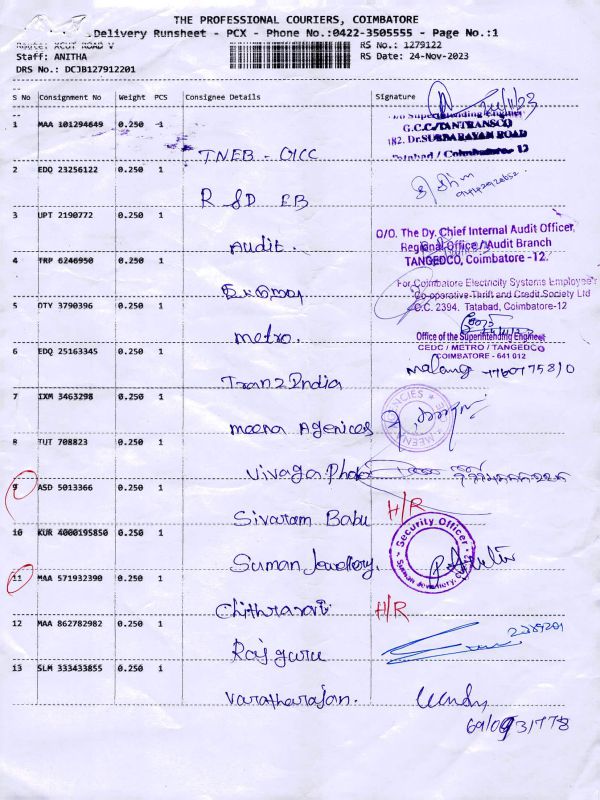 THE PROFESSIONAL COURIERS, COIMBATORE
Delivery Runsheet - PCX - Phone No.:0422-3505555 - Page No.:1
Route: XCUT ROAD V
RS No.: 1279122
Staff: ANITHA
RS Date: 24-Nov-2023
DRS No.: DCJB127912201
S No Consignment No Weight PCS Consignee Details Signature
24/11/23
1 MAA 101294649 0.250 1
G.C.C/TANTRANSCO
182. Dr.SUBBARAYAN ROAD
Tatabad / Coimbatore- 12
TNEB - GCC
2 EDQ 23256122 0.250 1
R &D EB
3 UPT 2190772 0.250 1
Audit.
O/O. The Dy. Chief Internal Audit Officer,
Regional Office / Audit Branch
TANGEDCO, Coimbatore -12.
4 TRP 6246950 0.250 1
For Coimbatore Electricity Systems Employee's
Co-operative Thrift and Credit Society Ltd
C.C. 2394. Tatabad, Coimbatore-12
5 OTY 3790396 0.250 1
metro.
Office of the Superintending Engineer
CEDC / METRO / TANGEDCO
COIMBATORE - 641 012
6 EDQ 25163345 0.250 1
Tranz India
7 IXM 3463298 0.250 1
meena Agenices
8 TUT 708823 0.250 1
Vivaga Photo
9 ASD 5013366 0.250 1
Sivaram Babu H/R
10 KUR 4000195850 0.250 1
Suman Jewellery.
Security Officer
11 MAA 571932390 0.250 1
H/R
12 MAA 862782982 0.250 1
Raj guru
13 SLM 333433855 0.250 1
Varatharajan.